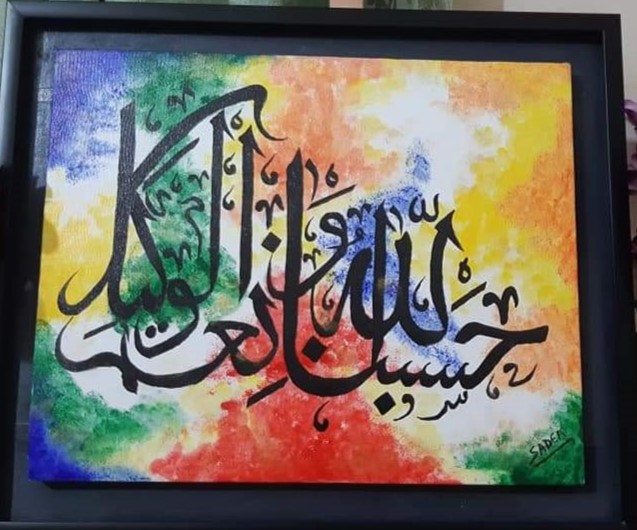 حسبنا الله ونعم الوكيل
SADEA